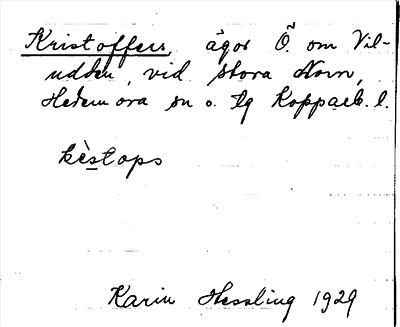 Kristoffers, ägor Ö. om Vil-
udden, vid stora Norn,
Hedemora sn o. tg Koppaeb. l.
kès̲taps
Karin Hessling 1929